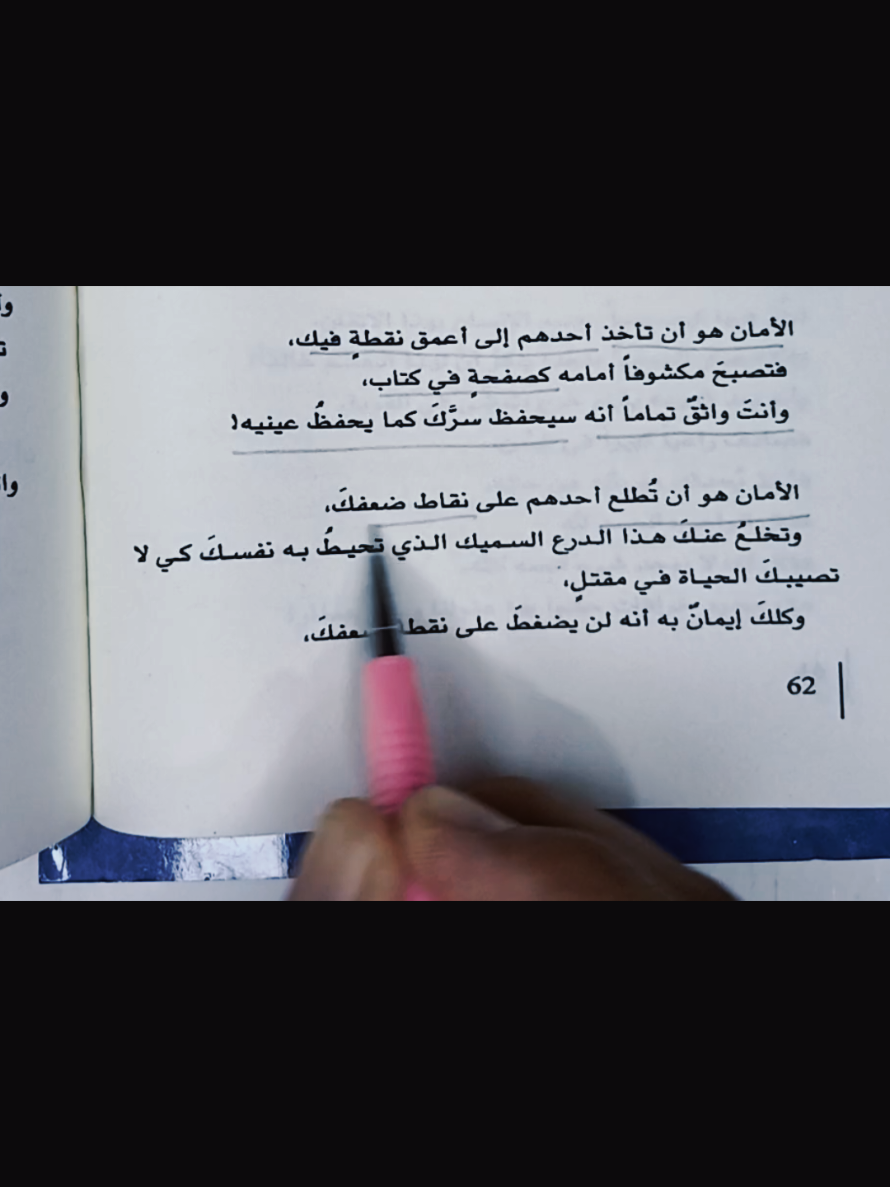 الأمان هو أن تأخذ أحدهم إلى أعمق نقطةٍ فيك،
فتصبحَ مكشوفاً أمامه كصفحةٍ في كتاب،
وأنتَ واثقٌ تماماً أنه سيحفظ سرَّكَ كما يحفظُ عينيه!
الأمان هو أن تُطلع أحدهم على نقاط ضعفكَ،
وتخلعُ عنكَ هذا الدرع السميك الذي تحيطُ به نفسكَ كي لا
تصيبكَ الحياة في مقتلٍ،
وكلكَ إيمانٌ به أنه لن يضغطَ على نقطة
62